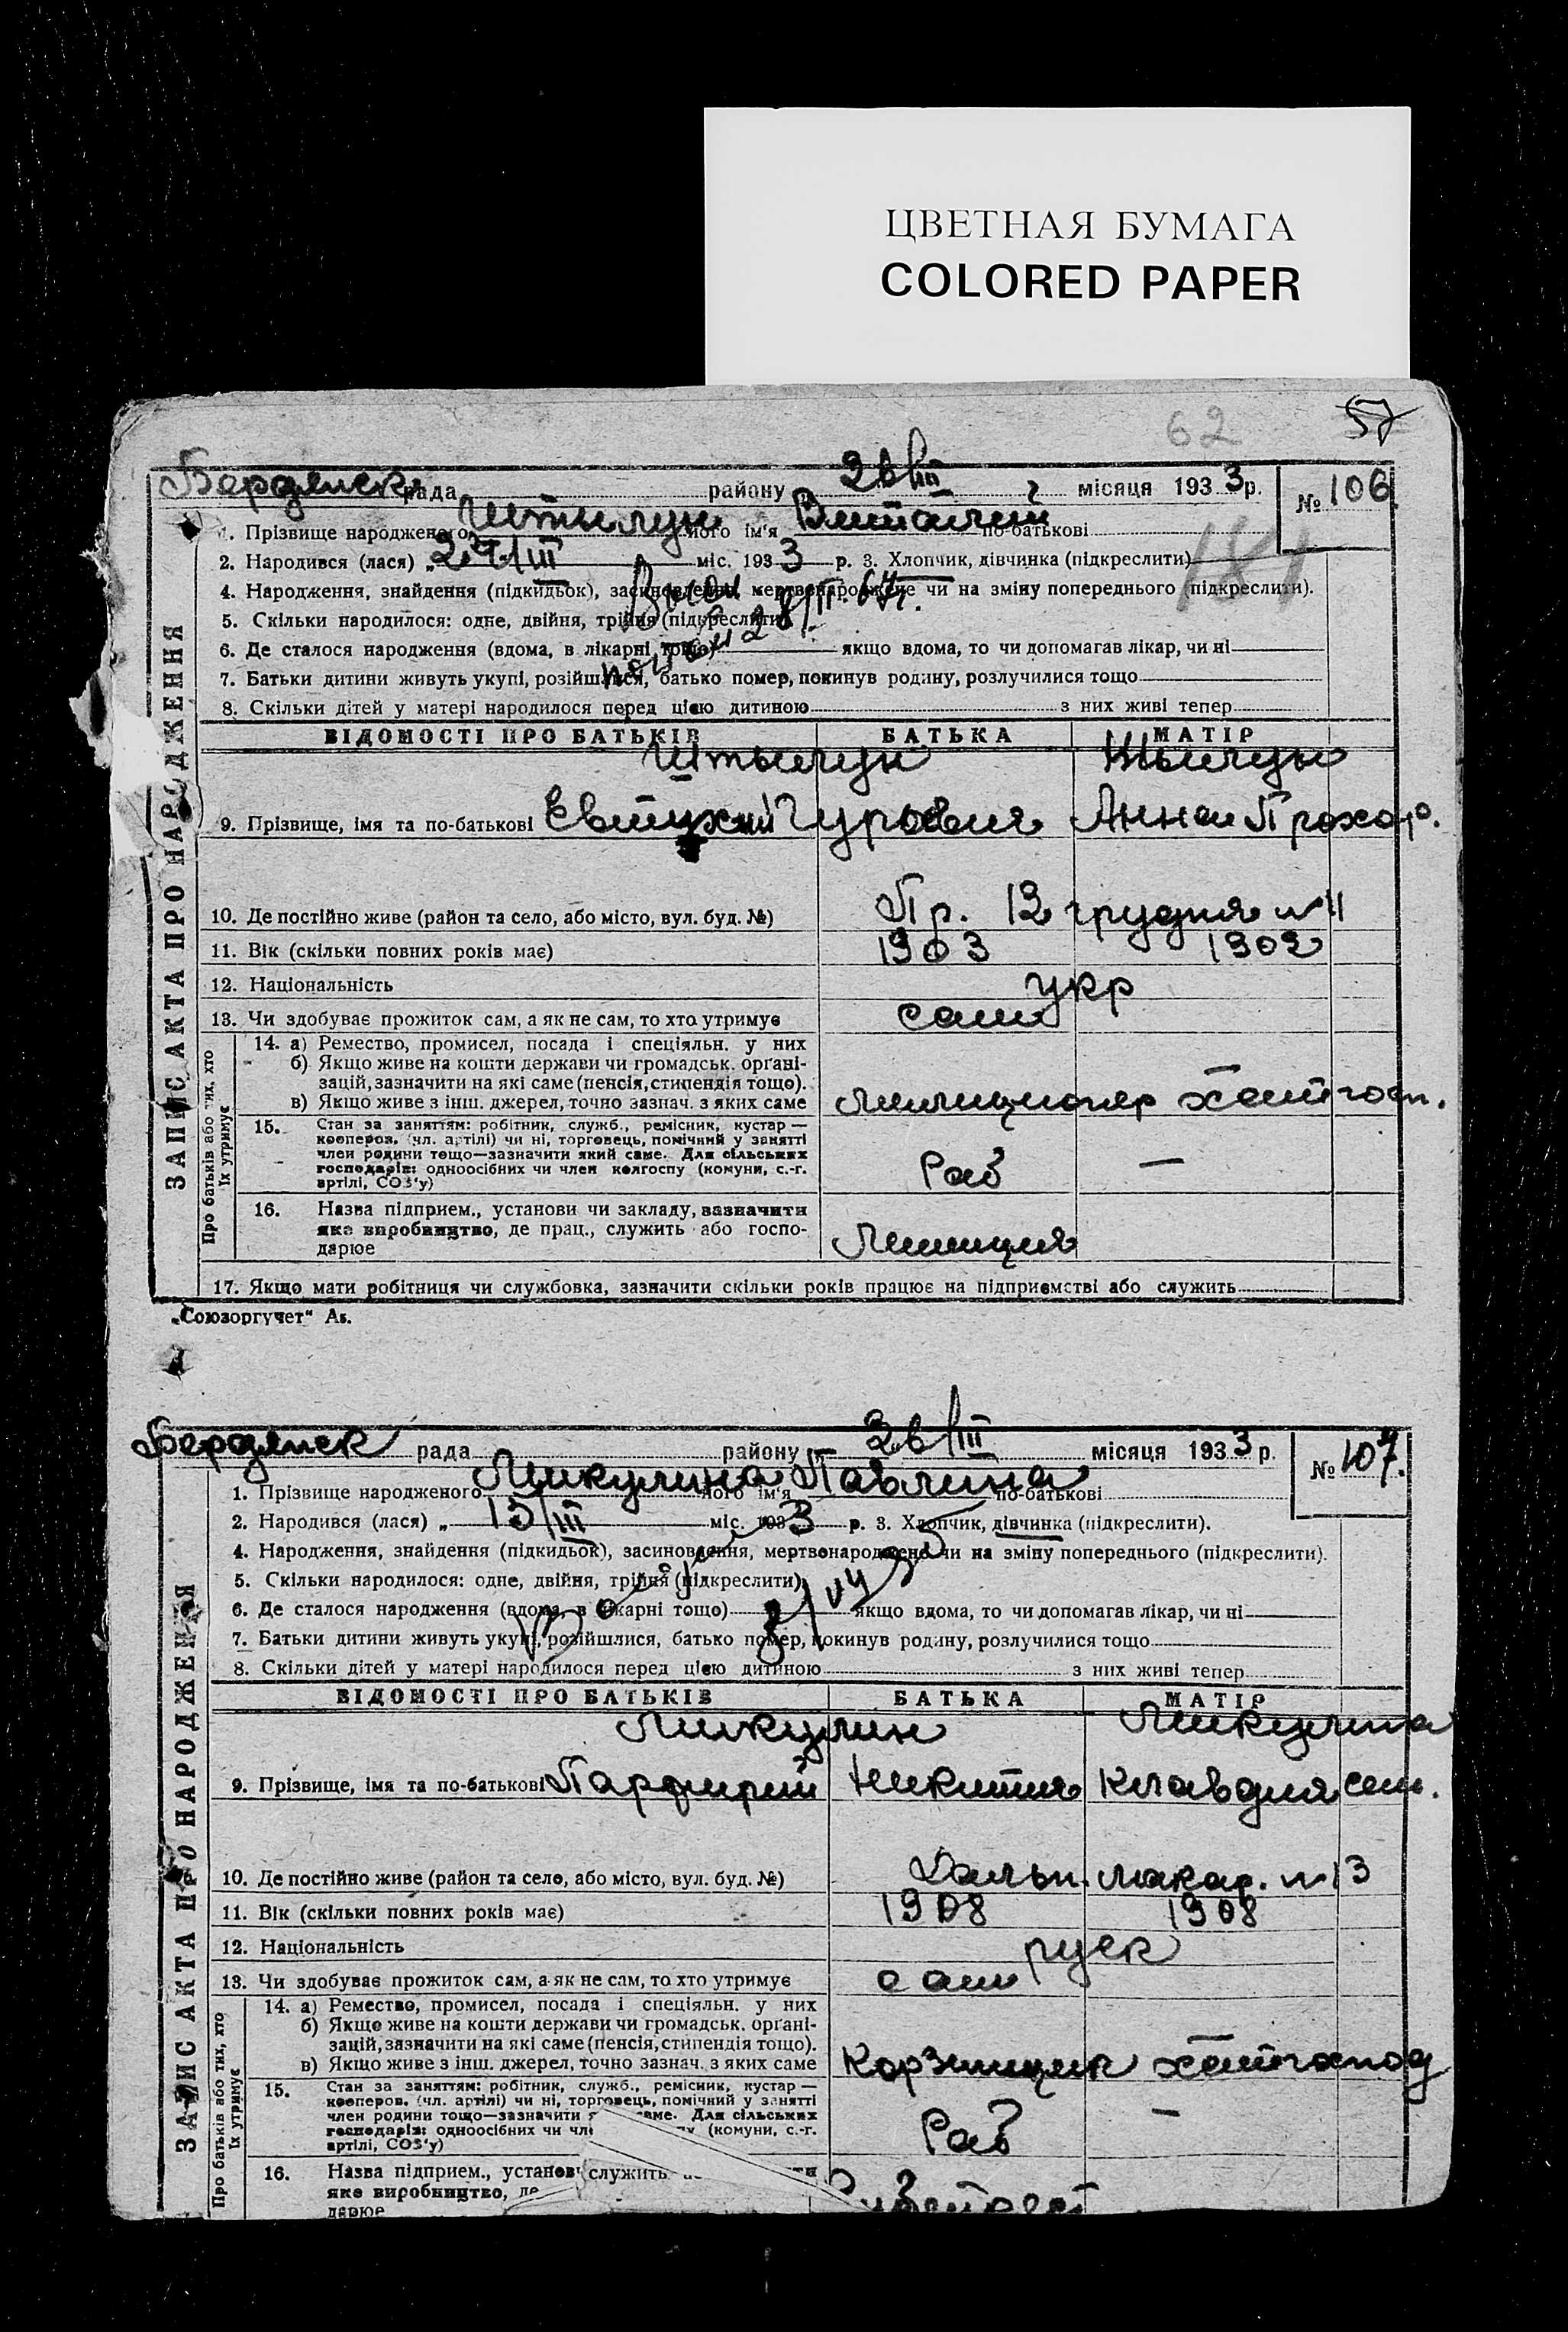 ЦВЕТНАЯ БУМАГА
COLORED PAPER
62 57
Бердянськ рада району 26/III місяця 1933 р. № 106
1. Прізвище народженого Штылун його ім'я Виталий по-батькові
2. Народився (лася) „ 24/III міс. 1933 р. 3. Хлопчик, дівчинка (підкреслити)
4. Народження, знайдення (підкидьок), засиновлення, мертвонароджене чи на зміну попереднього (підкреслити).
5. Скільки народилося: одне, двійня, трійня (підкреслити)
6. Де сталося народження (вдома, в лікарні тощо) якщо вдома, то чи допомагав лікар, чи ні
7. Батьки дитини живуть укупі, розійшлися, батько помер, покинув родину, розлучилися тощо
8. Скільки дітей у матері народилося перед цією дитиною з них живі тепер
ВІДОМОСТІ ПРО БАТЬКІВ БАТЬКА МАТІР
Штылун
9. Прізвище, імя та по-батькові Евтихий Гуровия Анна Прохор.
10. Де постійно живе (район та село, або місто, вул. буд. №) Пр. 12 грудня n 11
11. Вік (скільки повних років має) 1903 1902
12. Національність укр
13. Чи здобуває прожиток сам, а як не сам, то хто утримує сам
14. а) Ремество, промисел, посада і спеціяльн. у них
б) Якщо живе на кошти держави чи громадськ. орґані-
зацій, зазначити на які саме (пенсія, стипендія тощо).
в) Якщо живе з інш. джерел, точно зазнач. з яких саме милиционер хатгосп.
15. Стан за заняттям: робітник, служб., ремісник, кустар —
кооперов. (чл. артілі) чи ні, торговець, помічний у занятті
член родини тощо—зазначити який саме. Для сільських
господарів: одноосібних чи член колгоспу (комуни, с.-г.
артілі, СОЗ'у) Раб —
16. Назва підприєм., установи чи закладу, зазначити
яке виробництво, де прац., служить або госпо-
дарює Милиция
17. Якщо мати робітниця чи службовка, зазначити скільки років працює на підприємстві або служить
ЗАПИС АКТА ПРО НАРОДЖЕННЯ
Про батьків або тих, хто їх утримує
„Союзоргучет“ Аs.
Бердянск рада району 26/III місяця 1933 р. № 107.
1. Прізвище народженого Микулина його ім'я Павлина по-батькові
2. Народився (лася) „ 15/III міс. 1933 р. 3. Хлопчик, дівчинка (підкреслити).
4. Народження, знайдення (підкидьок), засиновлення, мертвонароджене чи на зміну попереднього (підкреслити).
5. Скільки народилося: одне, двійня, трійня (підкреслити)
6. Де сталося народження (вдома, в лікарні тощо) якщо вдома, то чи допомагав лікар, чи ні
7. Батьки дитини живуть укупі, розійшлися, батько помер, покинув родину, розлучилися тощо
8. Скільки дітей у матері народилося перед цією дитиною з них живі тепер
ВІДОМОСТІ ПРО БАТЬКІВ БАТЬКА МАТІР
Микулин Микулина
9. Прізвище, імя та по-батькові Парфирий Никития Клавдия сем.
10. Де постійно живе (район та село, або місто, вул. буд. №) Дальн. макар. n 13
11. Вік (скільки повних років має) 1908 1908
12. Національність руск
13. Чи здобуває прожиток сам, а як не сам, то хто утримує сам
14. а) Ремество, промисел, посада і спеціяльн. у них
б) Якщо живе на кошти держави чи громадськ. орґані-
зацій, зазначити на які саме (пенсія, стипендія тощо).
в) Якщо живе з інш. джерел, точно зазнач. з яких саме Корзинщик хатгоспод
15. Стан за заняттям: робітник, служб., ремісник, кустар —
кооперов. (чл. артілі) чи ні, торговець, помічний у занятті
член родини тощо—зазначити саме. Для сільських
господарів: одноосібних чи (комуни, с.-г.
артілі, СОЗ'у) Раб —
16. Назва підприєм., установ служить
яке виробництво, де
дарює
ЗАПИС АКТА ПРО НАРОДЖЕННЯ
Про батьків або тих, хто їх утримує